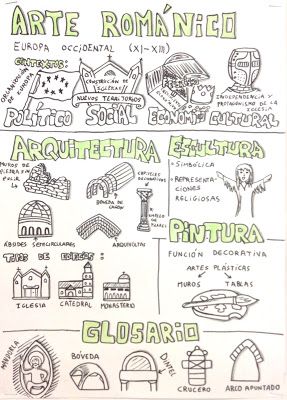 ARTE ROMÁNICO
EUROPA OCCIDENTAL (XI-XIII)
CONTEXTOS:
ORGANIZACIÓN
DE EUROPA
CONSTRUCCIÓN DE
IGLESIAS
NUEVOS TERRITORIOS
INDEPENDENCIA Y
PROTAGONISMO DE LA
IGLESIA
POLÍTICO SOCIAL ECONÓMI CULTURAL
ARQUITECTURA
MUROS DE
PIEDRA SIN
PULIR
BÓVEDA DE
CAÑÓN
CAPITELES
DECORATIVOS
ÁBSIDES SEMICIRCULARES
ARQUIVOLTAS
TIPOS DE EDIFICIOS:
IGLESIA
CATEDRAL
MONASTERIO
ESCULTURA
- SIMBÓLICA
- REPRESENTA-
CIONES
RELIGIOSAS
PINTURA
FUNCIÓN DECORATIVA
ARTES PLÁSTICAS
MUROS TABLAS
GLOSARIO
MANDORLA
BÓVEDA
DINTEL
CRUCERO
ARCO APUNTADO